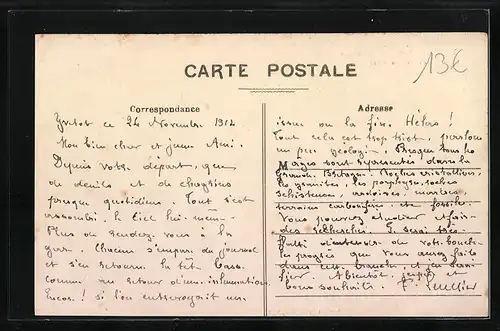 CARTE POSTALE
13€
Correspondance
Yvetot ce 24 Novembre 1914
Mon bien cher et jeune Ami.
Depuis votre départ, que
de deuils et de chagrins
presque quotidiens. Tout s'est
assombri. le Ciel lui-même
Plus de rendez-vous à la
gare. Chacun s'empare du journal
et s'en retourne la tête basse
comme au retour d'une inhumation
Encore! si l'on entrevoyait une
Adresse
issue ou la fin. Hélas!
Tout cela est trop triste, parlons
un peu géologie. Presque tous les
étages sont représentés dans la
Grande Bretagne. Roches cristallines,
les granites, les porphyres, roches
schisteuses, ardoises, marbres,
terrains carbonifères et fossiles.
Vous pourrez étudier et faire
des recherches. Je serai très
flatté d'entendre de votre bouche
les progrès que vous aurez faits
dans cette branche, et j'en serai
fier. A bientôt, j'espère et
bons souhaits.